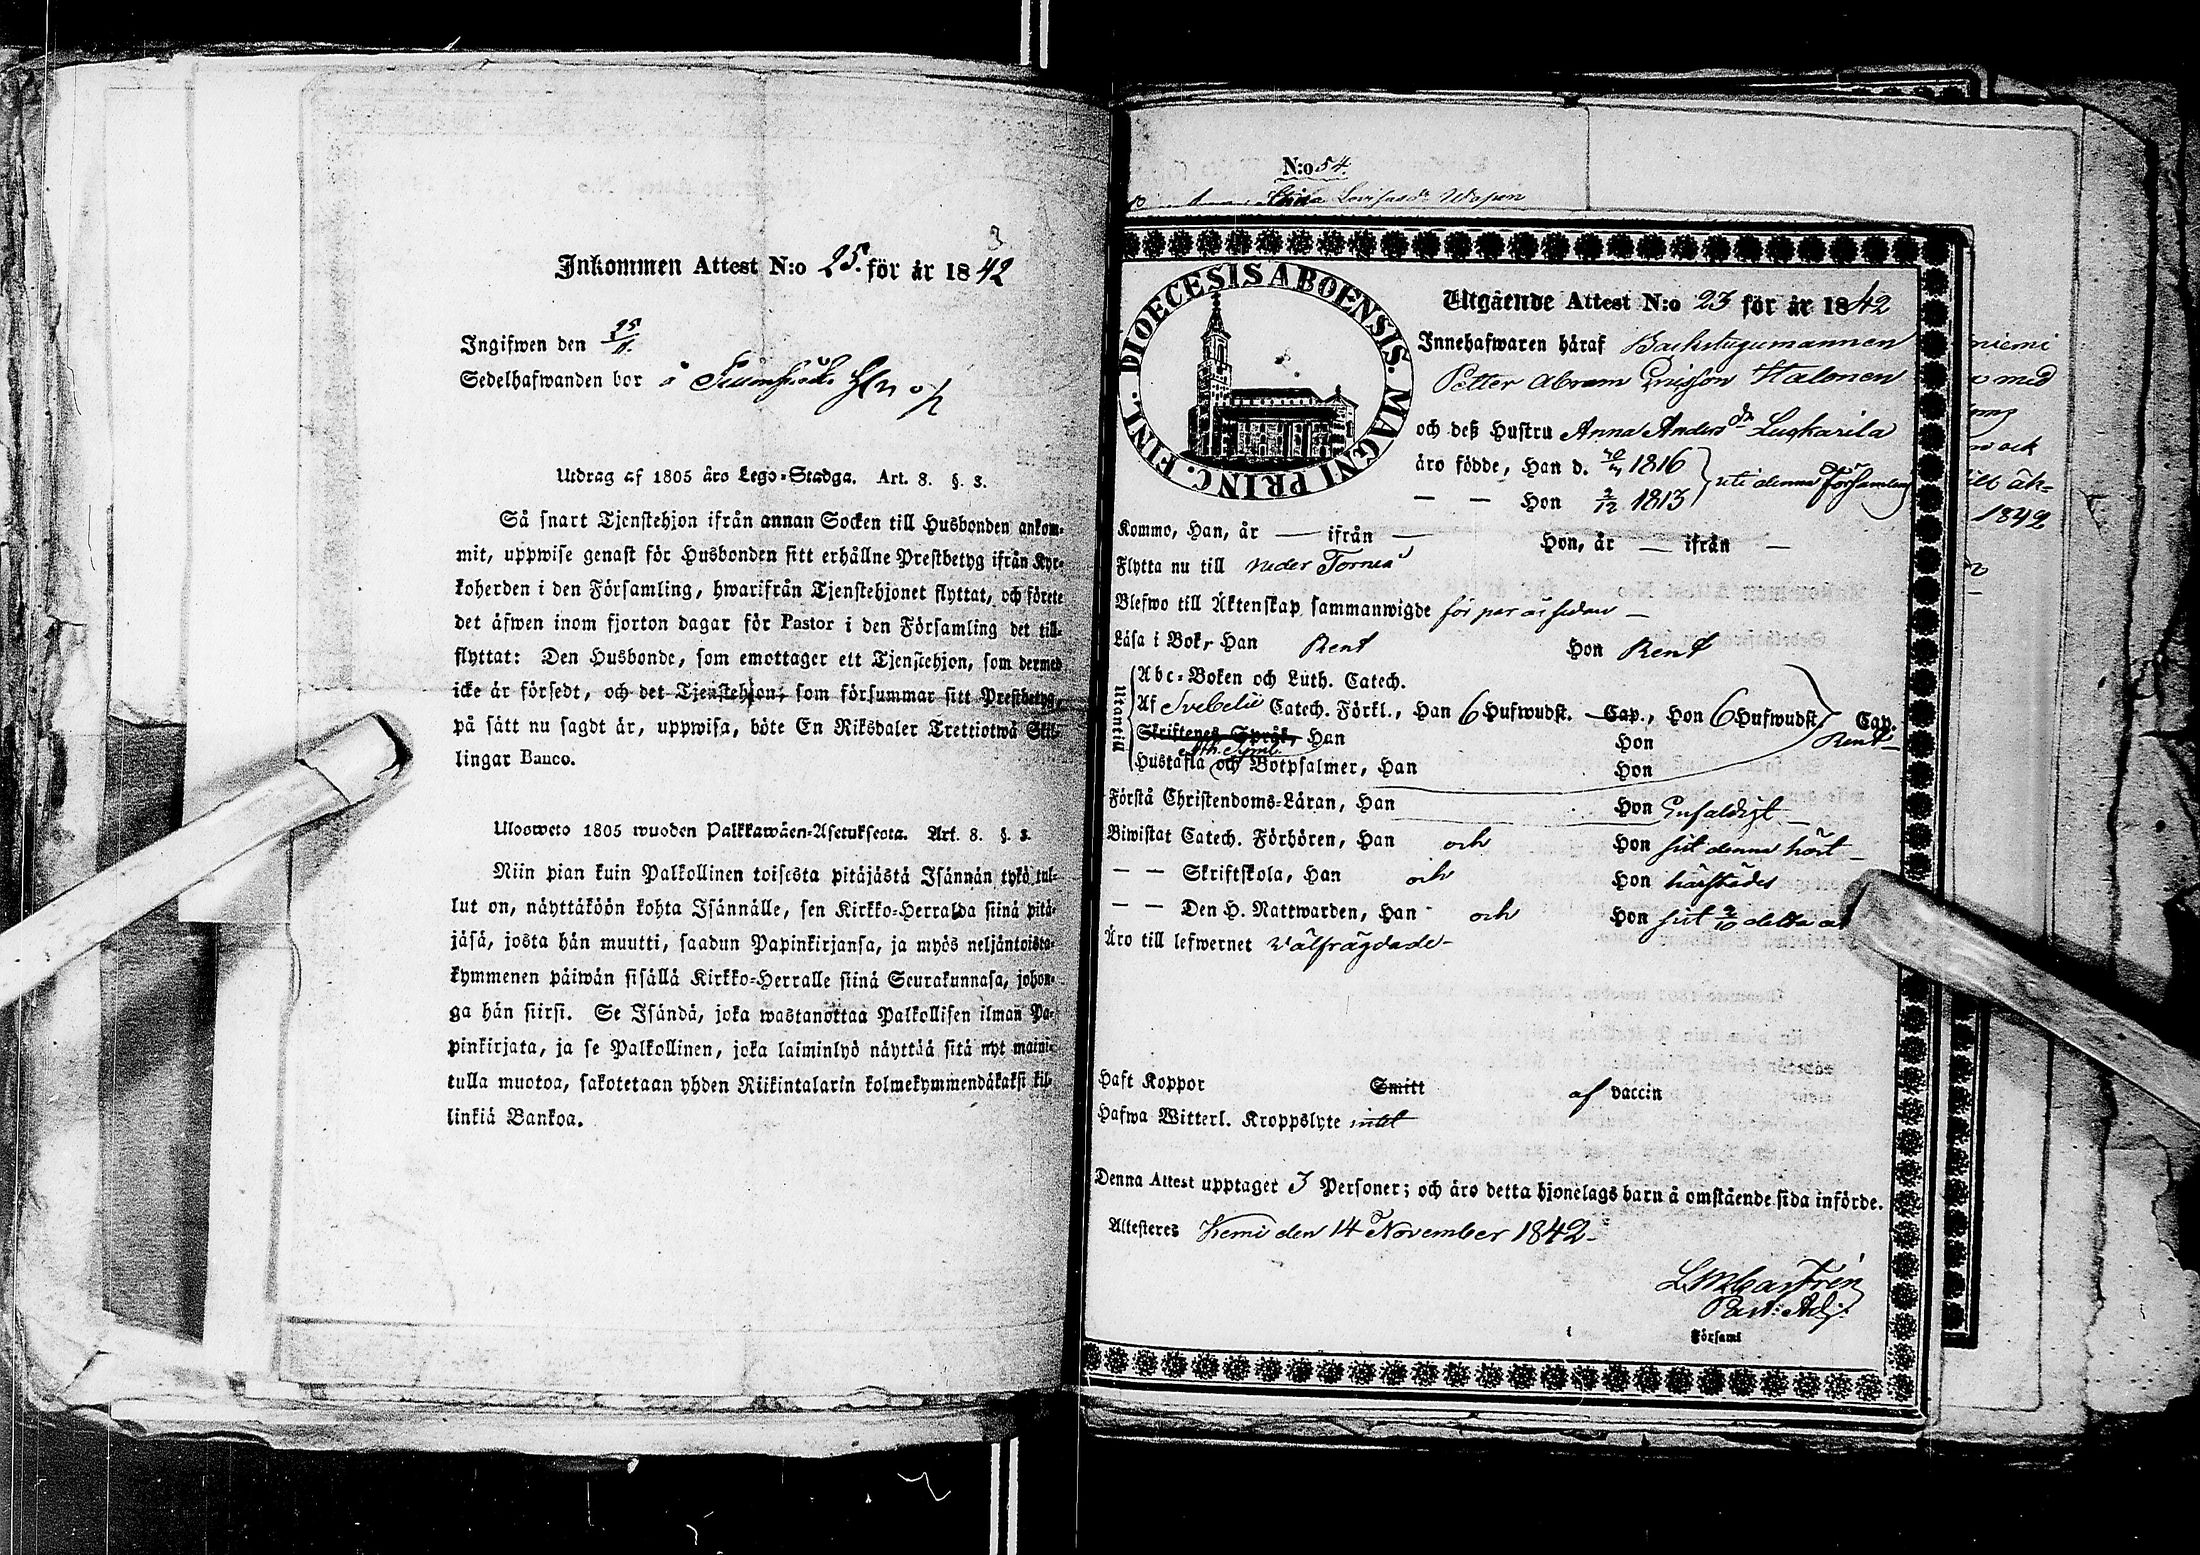 Inkommen Attest N:o 25. för år 1842
Ingifwen den 25/11.
Sedelhafwanden bor å
Utdrag af 1805 års Lego-Stadga. Art. 8. §. 3.
Så snart Tjenstehjon ifrån annan Socken till Husbonden ankom-
mit, uppwise genast för Husbonden sitt erhållne Prestbetyg ifrån Kyr-
koherden i den Församling, hwarifrån Tjenstehjonet flyttat, och förete
det äfwen inom fjorton dagar för Pastor i den Församling det till-
flyttat: Den Husbonde, som emottager ett Tjenstehjon, som dermed
icke är försedt, och det Tjenstehjon, som försummar sitt Prestbetyg,
på sätt nu sagdt är, uppwisa, böte En Riksdaler Trettiotwå Skil-
lingar Banco.
Ulosweto 1805 wuoden Palkkawäen-Asetuksesta. Art. 8. §. 3.
Niin pian kuin Palkollinen toisesta pitäjästä Isännän tykö tul-
lut on, näyttäköön kohta Isännälle, sen Kirkko-Herralda siinä pitä-
jäsä, josta hän muutti, saadun Papinkirjansa, ja myös neljäntoista-
kymmenen päiwän sisällä Kirkko-Herralle siinä Seurakunnasa, johon-
ga hän siirsi. Se Isändä, joka wastanottaa Palkollisen ilman Pa-
pinkirjata, ja se Palkollinen, joka laiminlyö näyttää sitä nyt maini-
tulla muotoa, sakotetaan yhden Riikintalarin kolmekymmendäkaksi kil-
linkiä Bankoa.
N:o 54.
Stina Lovisasdr Wapen
DIOECESIS ABOENSIS. MAGNI PRINC. FINL.
Utgående Attest N:o 23 för år 1842
Innehafwaren häraf Backstugumannen
Petter Abram Ericsson Halonen
och deß Hustru Anna Andersdr Luokarila
äro födde, Han d. 1816
— — Hon 2/12 1813 uti denna Församling
Kommo, Han, år — ifrån — Hon, år — ifrån —
Flytta nu till Neder Torneå
Blefwo till Äktenskap sammanwigde för par år sedan —
Läsa i Bok, Han Rent Hon Rent
Utantill
Abc-Boken och Luth. Catech.
Af Svebelii Catech. Förkl., Han 6 Hufwudst. Cap., Hon 6 Hufwudst. Cap.
Skriftenes Språk, Han Hon Rent
Ath. Symb.
Hustafla och Botpsalmer, Han Hon
Förstå Christendoms-Läran, Han Hon Enfaldigt —
Biwistat Catech. Förhören, Han och Hon sist denna höst —
— — Skriftskola, Han och Hon härstädes
— — Den H. Nattwarden, Han och Hon sist 2/10 detta år
Äro till lefwernet välfrägdade —
Haft Koppor Smitt af vaccin
Hafwa Witterl. Kroppslyte intet
Denna Attest upptager 3 Personer; och äro detta hjonelags barn å omstående sida införde.
Attesteres Kemi den 14 November 1842 —
L M Castrén
Past: Adj:
Församl
niemi
med
och
1842